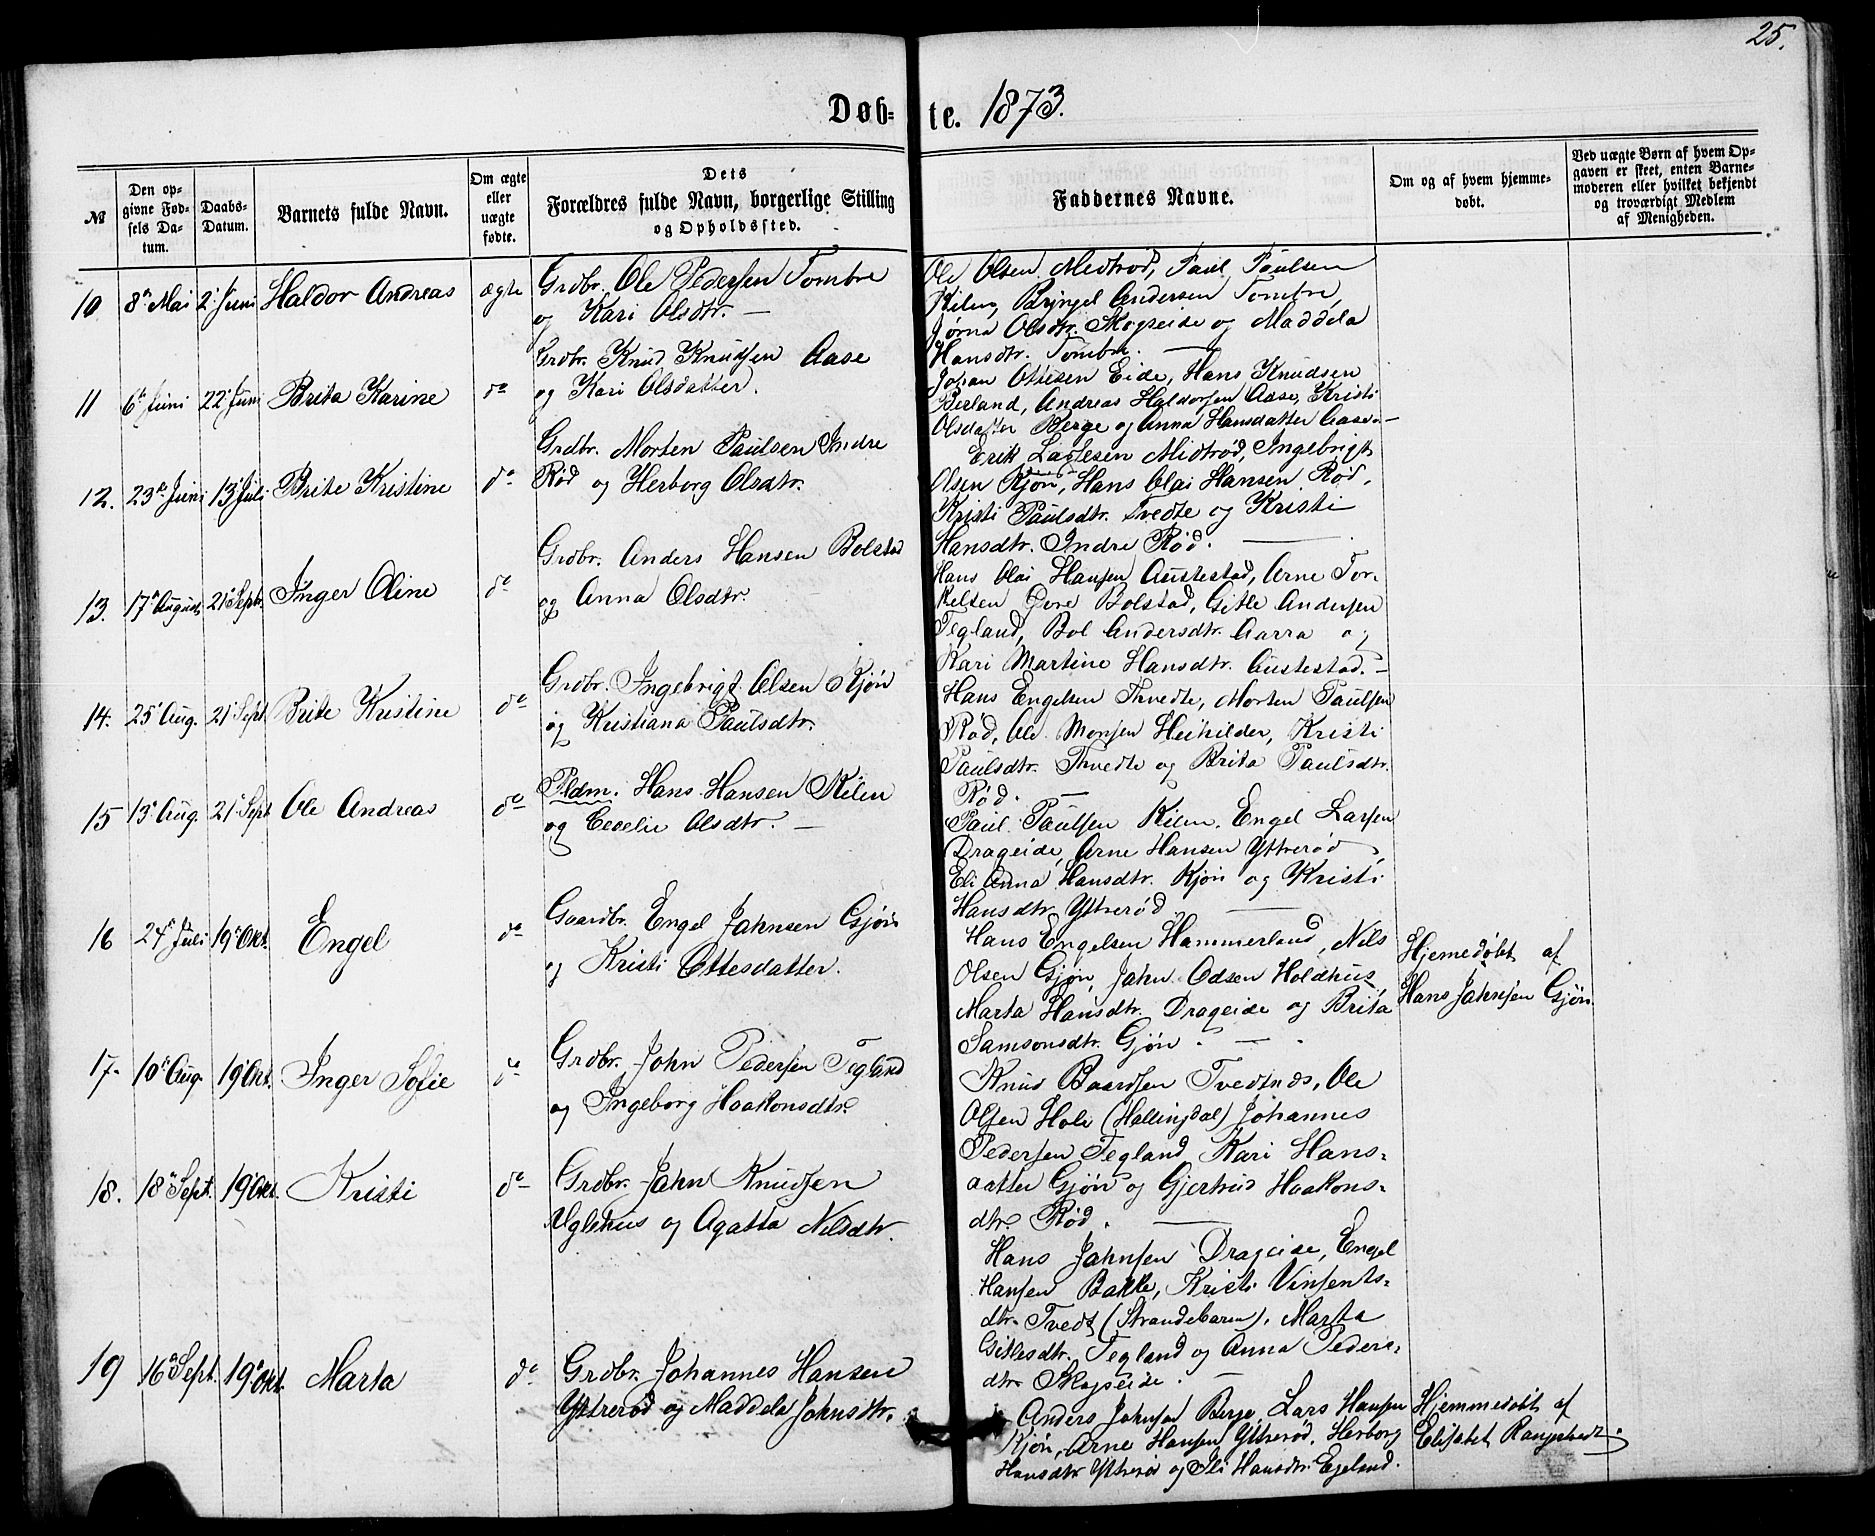 25.
Døb=te. 1873.
№
Den opgivne Fødsels Datum.
Daabs-Datum.
Barnets fulde Navn.
Om ægte eller uægte fødte.
Dets Forældres fulde Navn, borgerlige Stilling og Opholdssted.
Faddernes Navne.
Om og af hvem hjemmedøbt.
Ved uægte Børn af hvem Opgaven er skeet, enten Barnemoderen eller hvilket bekjendt og troværdigt Medlem af Menigheden.
10 8de Mai 2 Juni Haldor Andreas ægte
Grdbr. Ole Pedersen Tombre
og Kari Olsdtr. —
Ole Olsen Midtrød, Paul Paulsen
Kilen, Bryngel Andersen Tombre,
Jørna Olsdtr. Skogseide og Maddela
Hansdtr. Tombre. —
11 6te Juni 22 Juni Brita Karine do
Grdbr. Knud Knudsen Aase
og Kari Olsdatter.
Johan Ottesen Eide, Hans Knudsen
Berland, Andreas Haldorsen Aase, Kristi
Olsdatter Berge og Anna Hansdatter Aase. —
12. 23de Juni 13 Juli Brite Kristine do
Grdbr. Morten Paulsen Indre
Rød og Herborg Olsdtr.
Erik Larsen Midtrød, Ingebrigt
Olsen Kjøn, Hans Olai Hansen Rød,
Kristi Paulsdtr. Tvedte og Kristi
Hansdtr. Indre Rød. —
13. 17de August 21 Septr. Inger Oline do
Grdbr. Anders Hansen Bolstad
og Anna Olsdtr.
Hans Olai Hansen Austestad, Arne Tor-
kelsen Øvre Bolstad, Gitle Andersen
Tegland, Bol Andersdtr. Aarra og
Kari Martine Hansdtr. Austestad. —
14. 25 Aug. 21 Sept. Brite Kristine do
Grdbr. Ingebrigt Olsen Kjøn
og Kristiana Paulsdtr.
Hans Engelsen Thvedte, Morten Paulsen
Rød, Ole Monsen Heihilder, Kristi
Paulsdtr. Thvedte og Brita Paulsdtr.
Rød. —
15 13 Aug. 21 Sept Ole Andreas do
Pldm. Hans Hansen Kilen
og Cecelie Olsdtr. —
Paul Paulsen Kilen, Engel Larsen
Drageide, Arne Hansen Ytterød,
Eli Anna Hansdtr. Kjøn og Kristi
Hansdtr. Ytterød —
16 24de Juli 19 Okt. Engel do
Gaardbr. Engel Jahnsen Gjøn
og Kristi Ottesdatter.
Hans Engelsen Hammerland, Nils
Olsen Gjøn, Jahn Odsen Holdhus,
Marta Hansdtr. Drageide og Brita
Samsonsdtr. Gjøn. —
Hjemedøbt af
Hans Jahnsen Gjøn.
17. 10de Aug. 19 Okt. Inger Sofie do
Grdbr. John Pedersen Tegland
og Ingeborg Haakonsdtr.
Knud Baardsen Tvedtnes, Ole
Olsen Hole (Hallingdal) Johannes
Pedersen Tegland, Kari Hans=
datter Gjøn og Gjertrud Haakons=
dtr. Rød. —
18. 18de Sept. 19 Okt. Kristi do
Grdbr. Jahn Knudsen
Uglehus og Agatta Nilsdtr.
Hans Jahnsen Drageide, Engel
Hansen Bakke, Kristi Vinsents=
dtr. Tvedt (Strandebarm), Marta
Gitlesdtr. Tegland og Anna Peders=
dtr. Skogseide. —
19 16de Sept. 19 Okt. Marta do
Grdbr. Johannes Hansen
Ytterød og Maddela Johnsdtr.
Anders Johnsen Berge, Lars Hansen
Kjøn, Arne Hansen Ytterød, Herborg
Hansdtr. Ytterød og Hansdtr. Egeland.
Hjemmedøbt af
Elisabet